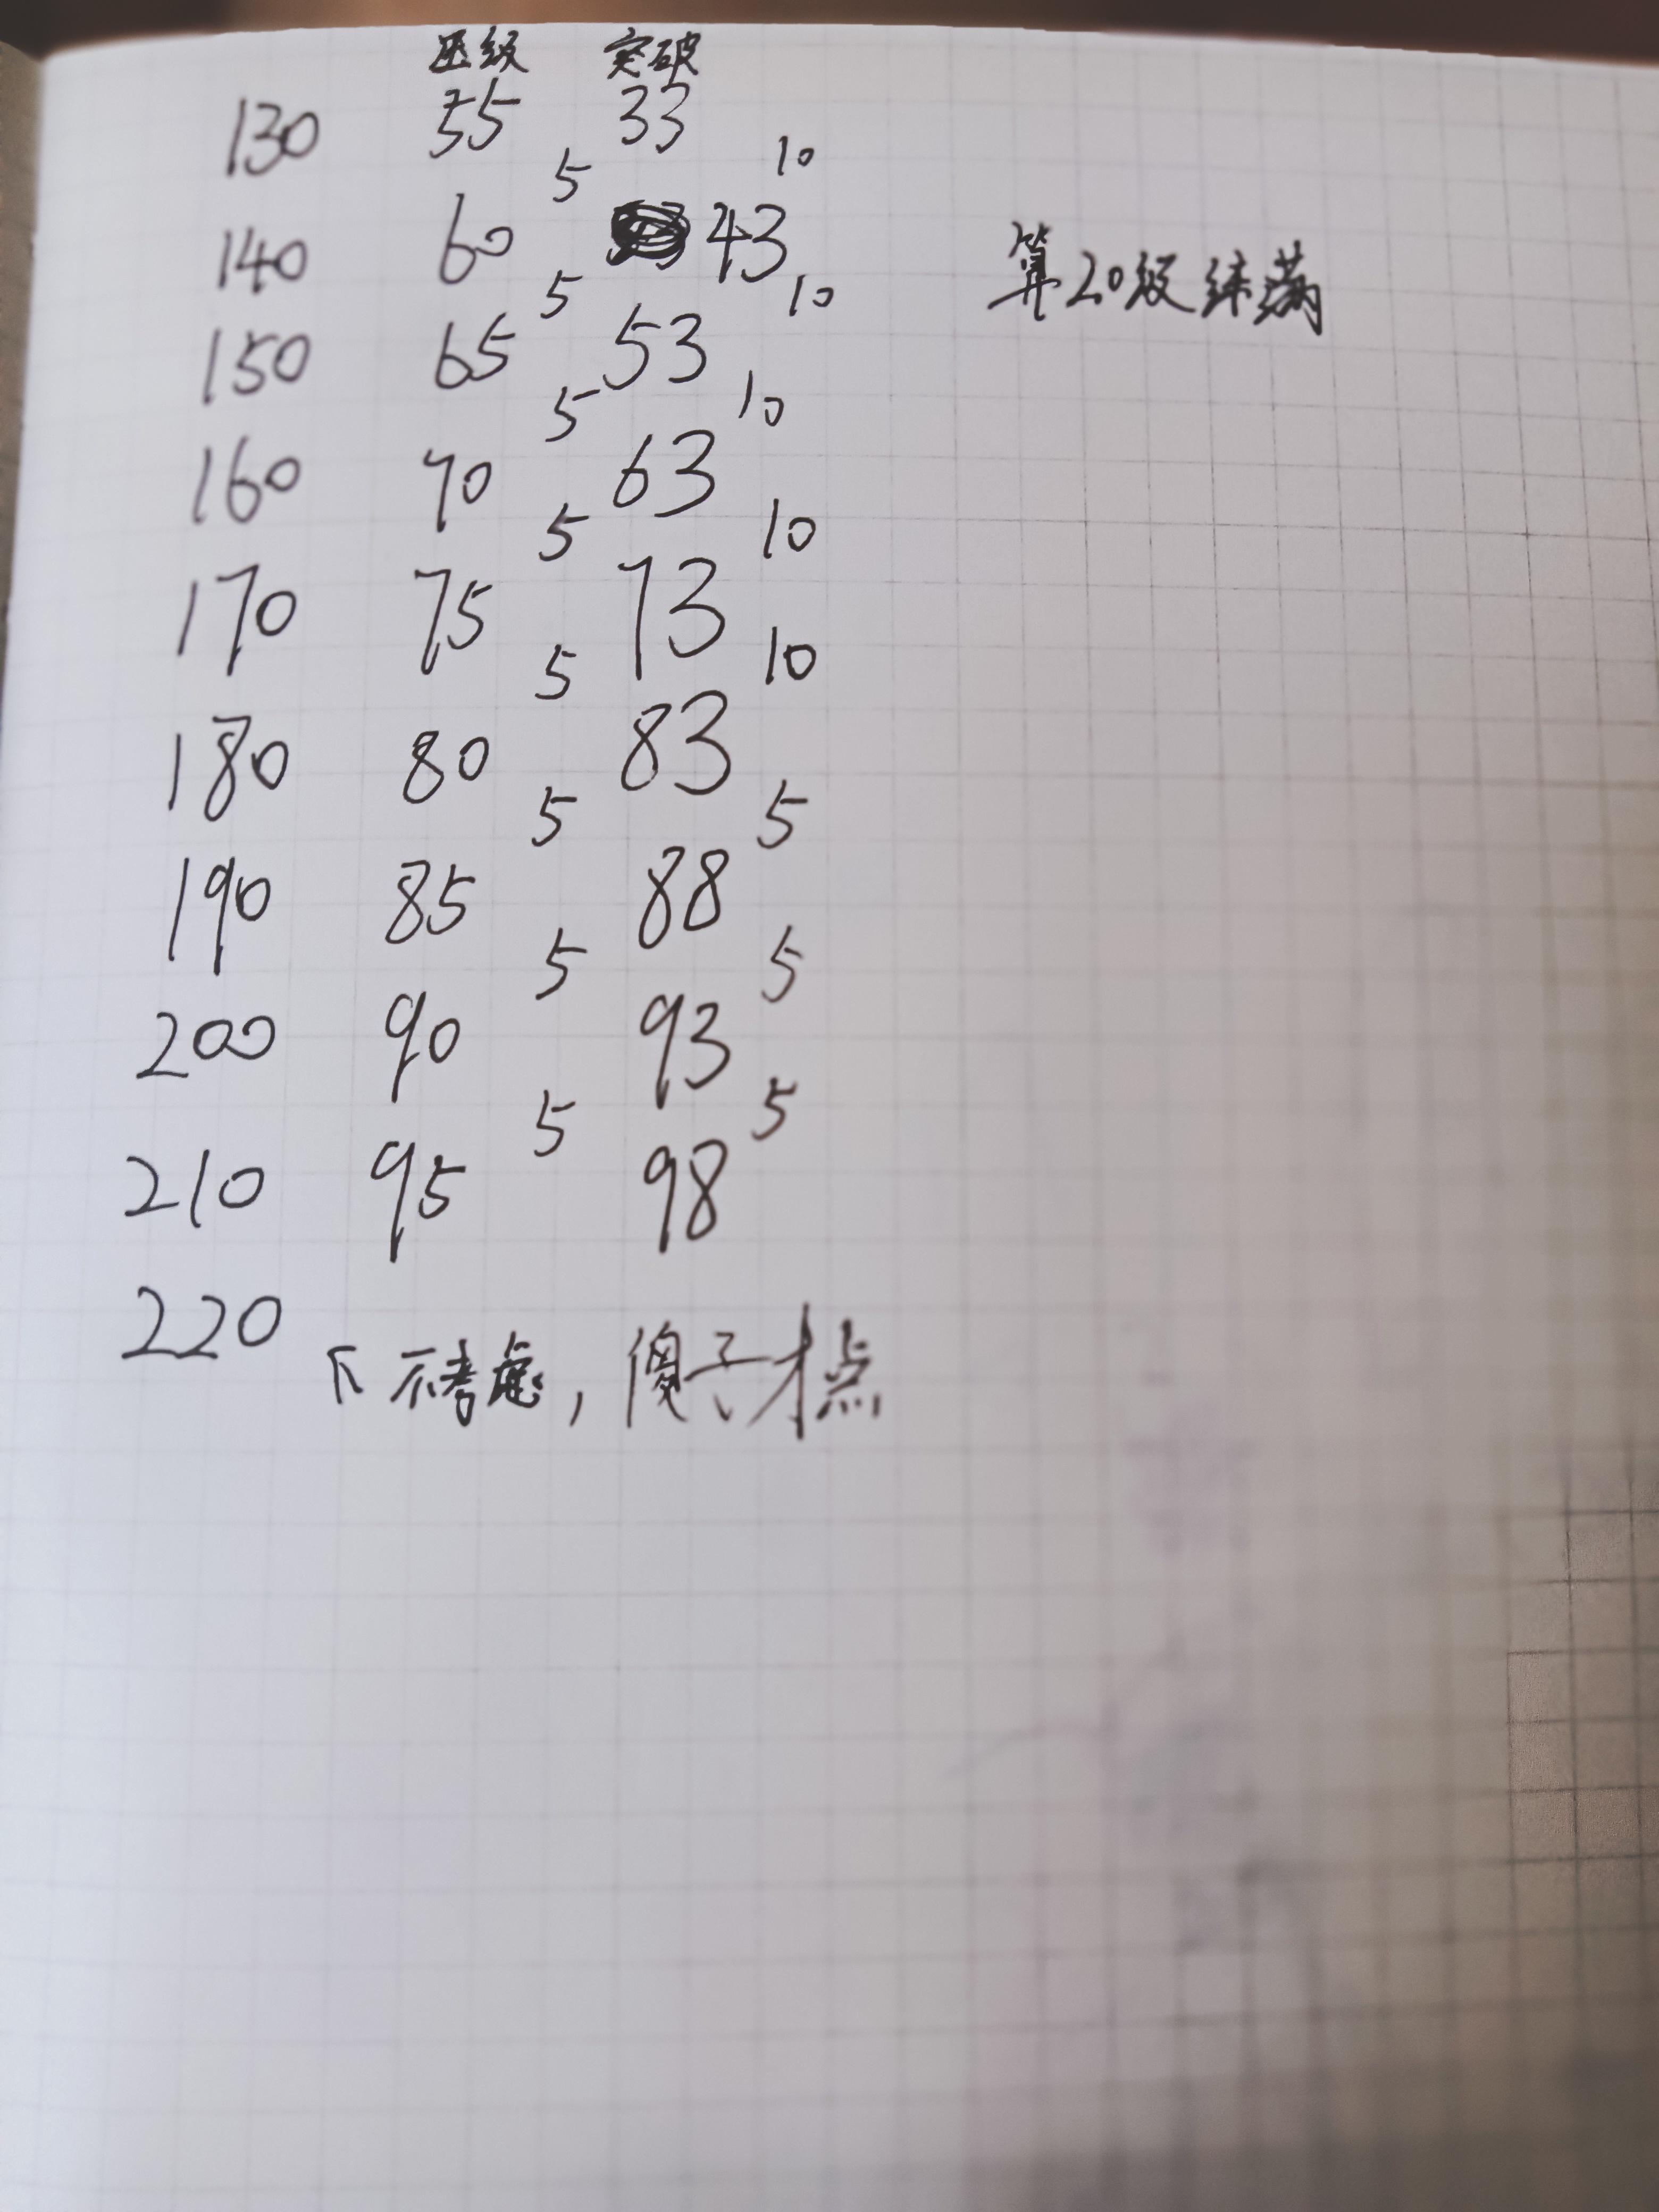 压级 突破
130 55 33
5 10
140 60 43
算20级练满
5 10
150 65 53
5 10
160 70 63
5 10
170 75 73
5 10
180 80 83
5 5
190 85 88
5 5
200 90 93
5 5
210 95 98
220 下不考虑，傻子才点